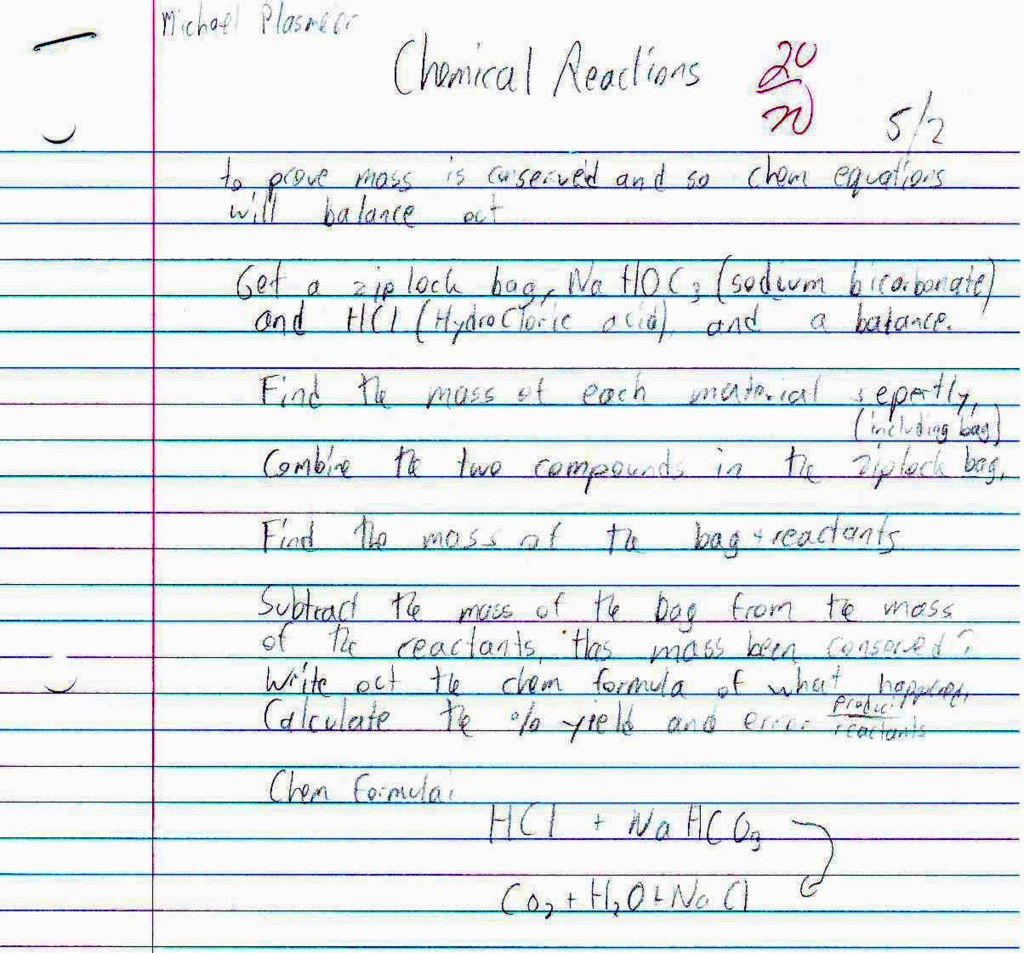 Michael Plasmeier
Chemical Reactions
20/20
5/2
to prove mass is conserved and so chem equations
will balance out
Get a ziplock bag, Na HOC3 (sodium bicarbonate)
and HCl (HydroCloric acid) and a balance.
Find the mass of each material sepertly,
(including bag)
Combine the two compounds in the ziplock bag.
Find the mass of the bag + reactants
Subtract the mass of the bag from the mass
of the reactants. Has mass been conserved?
Write out the chem formula of what happened.
Calculate the % yield and error product/reactants
Chem Formula:
HCl + Na HCO3
CO2 + H2O + Na Cl